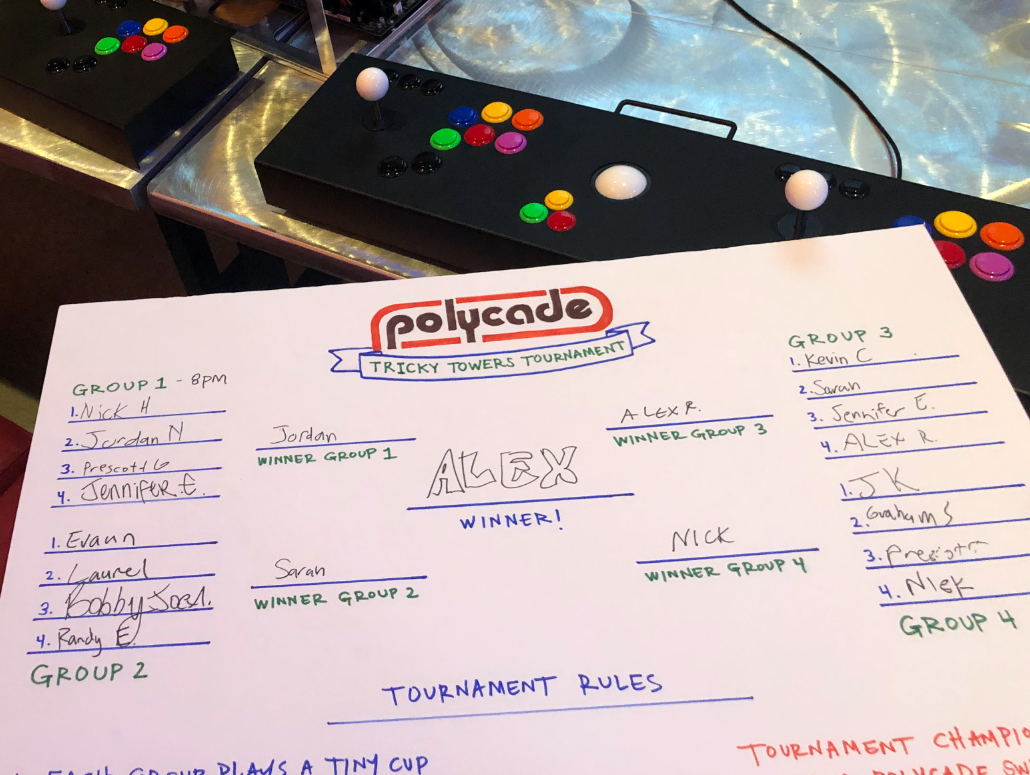 polycade
TRICKY TOWERS TOURNAMENT
GROUP 1 - 8PM
1. Nick H
2. Jordan N
3. Prescott G
4. JENNIFER E.
1. Evann
2. Laurel
3. Bobby
4. Randy E
GROUP 2
Jordan
WINNER GROUP 1
Saran
WINNER GROUP 2
ALEX
WINNER!
ALEX R.
WINNER GROUP 3
NICK
WINNER GROUP 4
GROUP 3
1. Kevin C
2. Saran
3. Jennifer E.
4. ALEX R.
1. JK
2. Graham S
3. Prescott
4. Nick
GROUP 4
TOURNAMENT RULES
EACH GROUP PLAYS A TINY CUP
TOURNAMENT CHAMPIO
POLYCADE SW